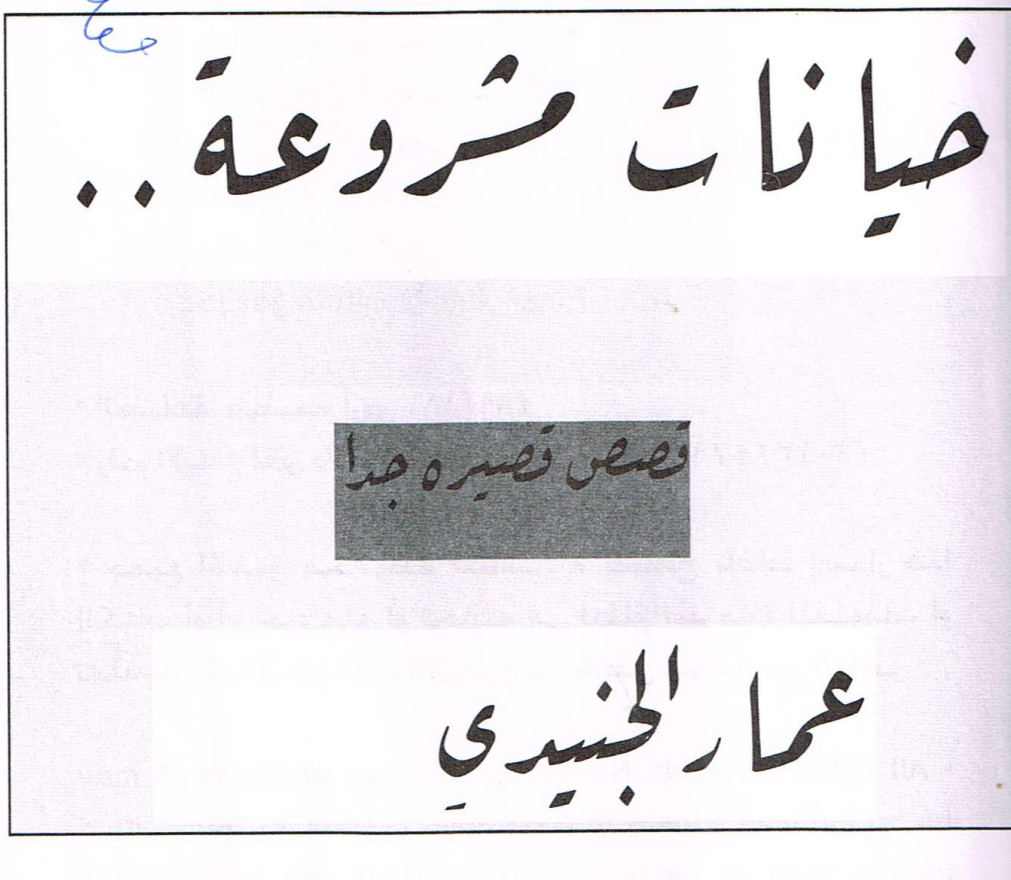 خيانات مشروعة..
قصص قصيره جدا
عمار الجنيدي